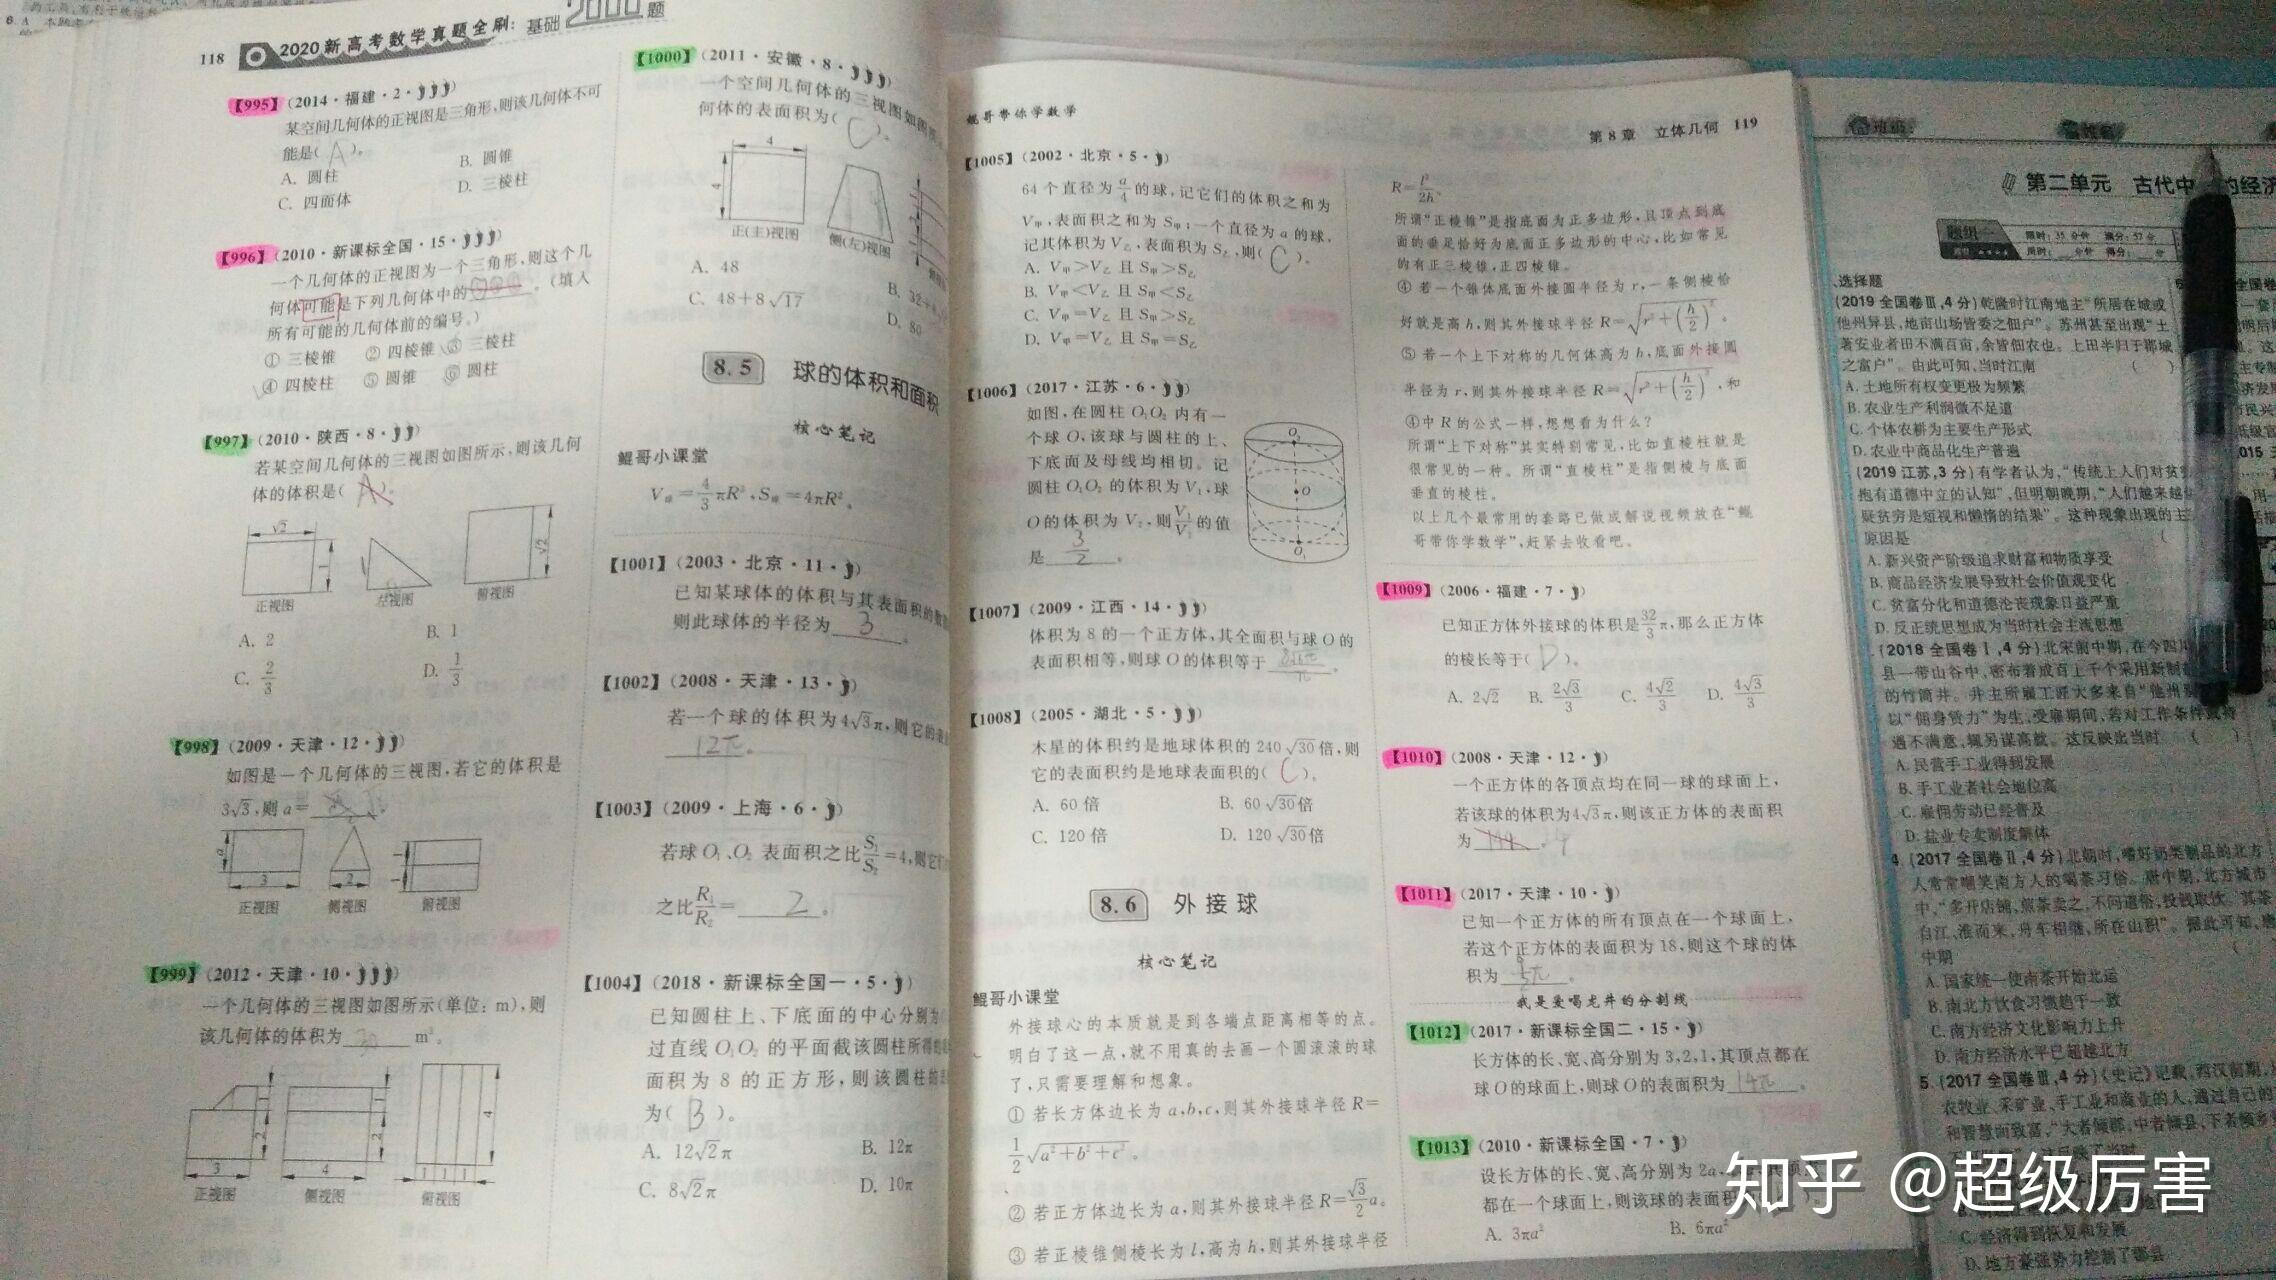 118 2020新高考数学真题全刷:基础2000题
【995】(2014·福建·2·)
某空间几何体的正视图是三角形,则该几何体不可
能是( A )。
A. 圆柱 B. 圆锥
C. 四面体 D. 三棱柱
【996】(2010·新课标全国·15·)
一个几何体的正视图为一个三角形,则这个几
何体可能是下列几何体中的 。(填入
所有可能的几何体前的编号。)
① 三棱锥 ② 四棱锥 ③ 三棱柱
④ 四棱柱 ⑤ 圆锥 ⑥ 圆柱
【997】(2010·陕西·8·)
若某空间几何体的三视图如图所示,则该几何
体的体积是( A )。
√2 1 √2
正视图 左视图 俯视图
A. 2 B. 1
C. 2/3 D. 1/3
【998】(2009·天津·12·)
如图是一个几何体的三视图,若它的体积是
3√3,则a=
a 3 2 1 1
正视图 侧视图 俯视图
【999】(2012·天津·10·)
一个几何体的三视图如图所示(单位: m),则
该几何体的体积为 30 m³。
3 2 1 4 2 1 1 1 1 4
正视图 侧视图 俯视图
【1000】(2011·安徽·8·)
一个空间几何体的三视图如图
何体的表面积为( C )。
4 4
正(主)视图 侧(左)视图
A. 48
C. 48+8√17 D. 80
8.5 球的体积和面积
核心笔记
鲲哥小课堂
V球=4/3πR³,S球=4πR²。
【1001】(2003·北京·11·)
已知某球体的体积与其表面积的数
则此球体的半径为 3 。
【1002】(2008·天津·13·)
若一个球的体积为4√3π,则它的表
12π 。
【1003】(2009·上海·6·)
若球O₁、O₂ 表面积之比S₁/S₂=4,则它
之比R₁/R₂= 2 。
【1004】(2018·新课标全国一·5·)
已知圆柱上、下底面的中心分别为
过直线O₁O₂ 的平面截该圆柱所得
面积为8的正方形,则该圆柱的
为( B )。
A. 12√2π B. 12π
C. 8√2π D. 10π
鲲哥带你学数学
第8章 立体几何 119
【1005】(2002·北京·5·)
64个直径为a/4的球,记它们的体积之和为
V甲,表面积之和为S甲;一个直径为a的球,
记其体积为V乙,表面积为S乙,则( C )。
A. V甲>V乙 且 S甲>S乙
B. V甲<V乙 且 S甲<S乙
C. V甲=V乙 且 S甲>S乙
D. V甲=V乙 且 S甲=S乙
【1006】(2017·江苏·6·)
如图,在圆柱O₁O₂ 内有一
个球O,该球与圆柱的上、
下底面及母线均相切。记
圆柱O₁O₂ 的体积为V₁,球
O的体积为V₂,则V₁/V₂的值
是 3/2 。
O₂ O O₁
【1007】(2009·江西·14·)
体积为8的一个正方体,其全面积与球O的
表面积相等,则球O的体积等于 。
【1008】(2005·湖北·5·)
木星的体积约是地球体积的240√30倍,则
它的表面积约是地球表面积的( C )。
A. 60倍 B. 60√30倍
C. 120倍 D. 120√30倍
8.6 外接球
核心笔记
鲲哥小课堂
外接球心的本质就是到各端点距离相等的点。
明白了这一点,就不用真的去画一个圆滚滚的球
了,只需要理解和想象。
① 若长方体边长为a,b,c,则其外接球半径R=
1/2√(a²+b²+c²)。
② 若正方体边长为a,则其外接球半径R=√3/2a。
③ 若正棱锥侧棱长为l,高为h,则其外接球半径
R=l²/2h。
所谓“正棱锥”是指底面为正多边形,且顶点到底
面的垂足恰好为底面正多边形的中心,比如常见
的有正三棱锥,正四棱锥。
④ 若一个锥体底面外接圆半径为r,一条侧棱恰
好就是高h,则其外接球半径R=√(r²+(h/2)²)。
⑤ 若一个上下对称的几何体高为h,底面外接圆
半径为r,则其外接球半径R=√(r²+(h/2)²),和
④中R的公式一样,想想看为什么?
所谓“上下对称”其实特别常见,比如直棱柱就是
很常见的一种。所谓“直棱柱”是指侧棱与底面
垂直的棱柱。
以上几个最常用的套路已做成解说视频放在“鲲
哥带你学数学”,赶紧去收看吧。
【1009】(2006·福建·7·)
已知正方体外接球的体积是32/3π,那么正方体
的棱长等于( D )。
A. 2√2 B. 2√3/3 C. 4√2/3 D. 4√3/3
【1010】(2008·天津·12·)
一个正方体的各顶点均在同一球的球面上,
若该球的体积为4√3π,则该正方体的表面积
为 。
【1011】(2017·天津·10·)
已知一个正方体的所有顶点在一个球面上,
若这个正方体的表面积为18,则这个球的体
积为 。
我是爱喝龙井的分割线
【1012】(2017·新课标全国二·15·)
长方体的长、宽、高分别为3,2,1,其顶点都在
球O的球面上,则球O的表面积为 14π 。
【1013】(2010·新课标全国·7·)
设长方体的长、宽、高分别为2a,
都在一个球面上,则该球的表面积
A. 3πa² B. 6πa²
班级: 姓名:
第二单元 古代中 的经济
题组一 限时: 35 分钟 满分: 57 分
用时: 分钟 得分: 分
选择题
(2019全国卷Ⅲ,4分)乾隆时江南地主“所居在城或
他州异县,地亩山场皆委之佃户”。苏州甚至出现“土
著安业者田不满百亩,余皆佃农也。上田半归于郡城
之富户”。由此可知,当时江南 ( )
A. 土地所有权变更极为频繁
B. 农业生产利润微不足道
C. 个体农耕为主要生产形式
D. 农业中商品化生产普遍
(2019江苏,3分)有学者认为,“传统上人们对贫
抱有道德中立的认知”,但明朝晚期,“人们越来越
疑贫穷是短视和懒惰的结果”。这种现象出现的主
原因是 (
A. 新兴资产阶级追求财富和物质享受
B. 商品经济发展导致社会价值观变化
C. 贫富分化和道德沦丧现象日益严重
D. 反正统思想成为当时社会主流思想
(2018全国卷Ⅰ,4分)北宋前中期,在今四川
县一带山谷中,密布着成百上千个采用新制
的竹筒井。井主所雇工匠大多来自“他州
以“佣身赁力”为生,受雇期间,若对工作条件或待
遇不满意,辄另谋高就。这反映出当时 ( )
A. 民营手工业得到发展
B. 手工业者社会地位高
C. 雇佣劳动已经普及
D. 盐业专卖制度解体
4. (2017全国卷Ⅱ,4分)北朝时,嗜好奶类制品的北方
人常常嘲笑南方人的喝茶习俗。唐中期,北方城市
中,“多开店铺,煎茶卖之,不问道俗,投钱取饮。其茶
自江、淮而来,舟车相继,所在山积”。据此可知,唐
中期 (
A. 国家统一使南茶开始北运
B. 南北方饮食习惯趋于一致
C. 南方经济文化影响力上升
D. 南方经济水平已超越北方
5. (2017全国卷Ⅲ,4分)《史记》记载,西汉前期,
农牧业、采矿业、手工业和商业的人,通过自己的
和智慧而致富,“大者倾郡,中者倾县,下者倾乡
C. 经济得到恢复和发展
D. 地方豪强势力控制了郡县
知乎 @超级厉害